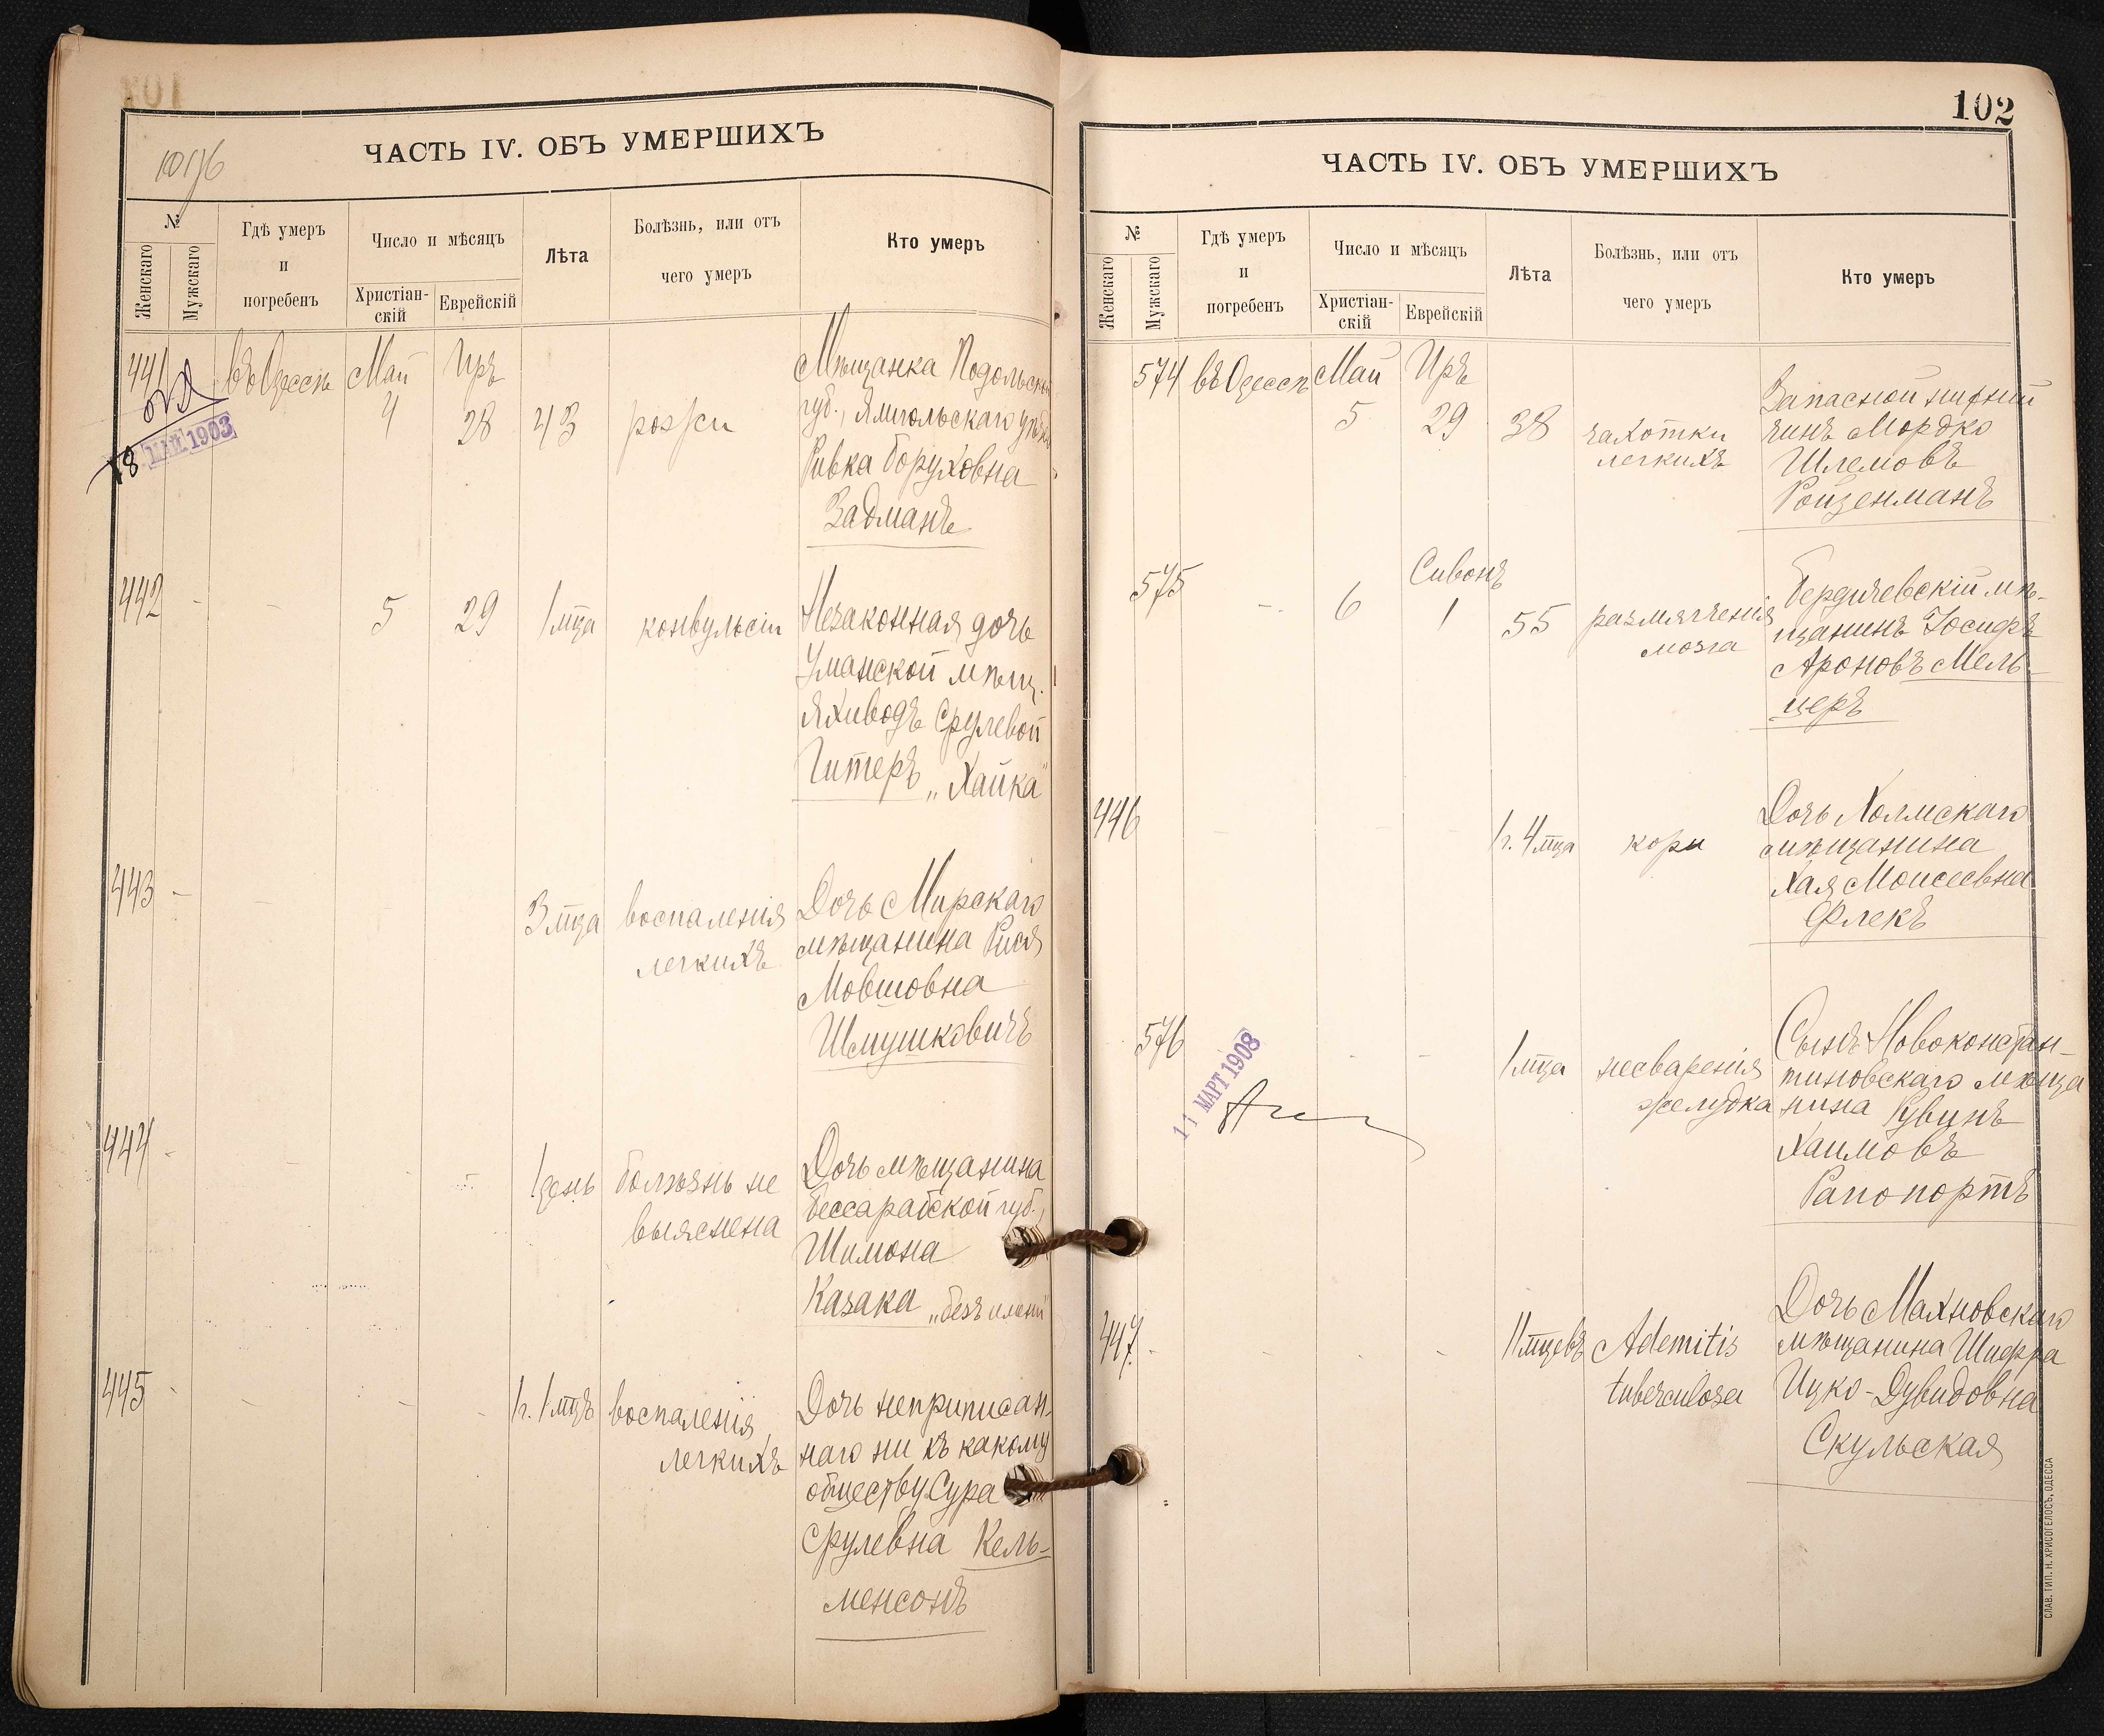 ЧАСТЬ IV. ОБЪ УМЕРШИХЪ
№
Женскаго
Мужскаго
Гдѣ умеръ
и
погребенъ
Число и мѣсяцъ
Христіан-
скій
Еврейскій
Лѣта
Болѣзнь, или отъ
чего умеръ
Кто умеръ
441
въ Одессѣ
Май
4
Иръ
28
43
рожи
Мѣщанка Подольской
губ., Ямпольскаго уѣзда
Ривка Боруховна
Задманъ
МАЙ 1903
442
-
-
5
29
1 мца
конвульсіи
Незаконная дочь
Уманской мѣщ.
Яхиводъ Срулевой
Гитеръ „Хайка"
443
-
-
-
-
3 мца
воспаленія
легкихъ
Дочь Мирскаго
мѣщанина Рися
Мовшовна
Шмушковичъ
444
-
-
-
-
1 день
болѣзнь не
выяснена
Дочь мѣщанина
Бессарабской губ.,
Шимона
Казака „безъ имени"
445
-
-
-
-
1 г. 1 мцъ
воспаленія
легкихъ
Дочь неприписан-
наго ни къ какому
обществу Сура
Срулевна Кель-
менсонъ
102
ЧАСТЬ IV. ОБЪ УМЕРШИХЪ
№
Женскаго
Мужскаго
Гдѣ умеръ
и
погребенъ
Число и мѣсяцъ
Христіан-
скій
Еврейскій
Лѣта
Болѣзнь, или отъ
чего умеръ
Кто умеръ
574
въ Одессѣ
Май
5
Иръ
29
38
чахотки
легкихъ
Запасной нижній
чинъ Мордко
Шлемовъ
Ройзенманъ
575
-
6
Сивонъ
1
55
размягченія
мозга
Бердичевскій мѣ-
щанинъ Іосифъ
Ароновъ Мель-
церъ
446
-
-
-
1 г. 4 мца
кори
Дочь Холмскаго
мѣщанина
Хая Моисеевна
Флекъ
576
11 МАРТ 1908
-
-
1 мца
несваренія
желудка
Сынъ Новоконстан-
тиновскаго мѣща
нина Рувинъ
Хаимовъ
Рапопортъ
447
-
-
-
-
11 мцевъ
Ademitis
tuberculosa
Дочь Махновскаго
мѣщанина Шифра
Ицко-Дувидовна
Скульская
СЛАВ. ТИП. Н. ХРИСОГЕЛОСЪ, ОДЕССА